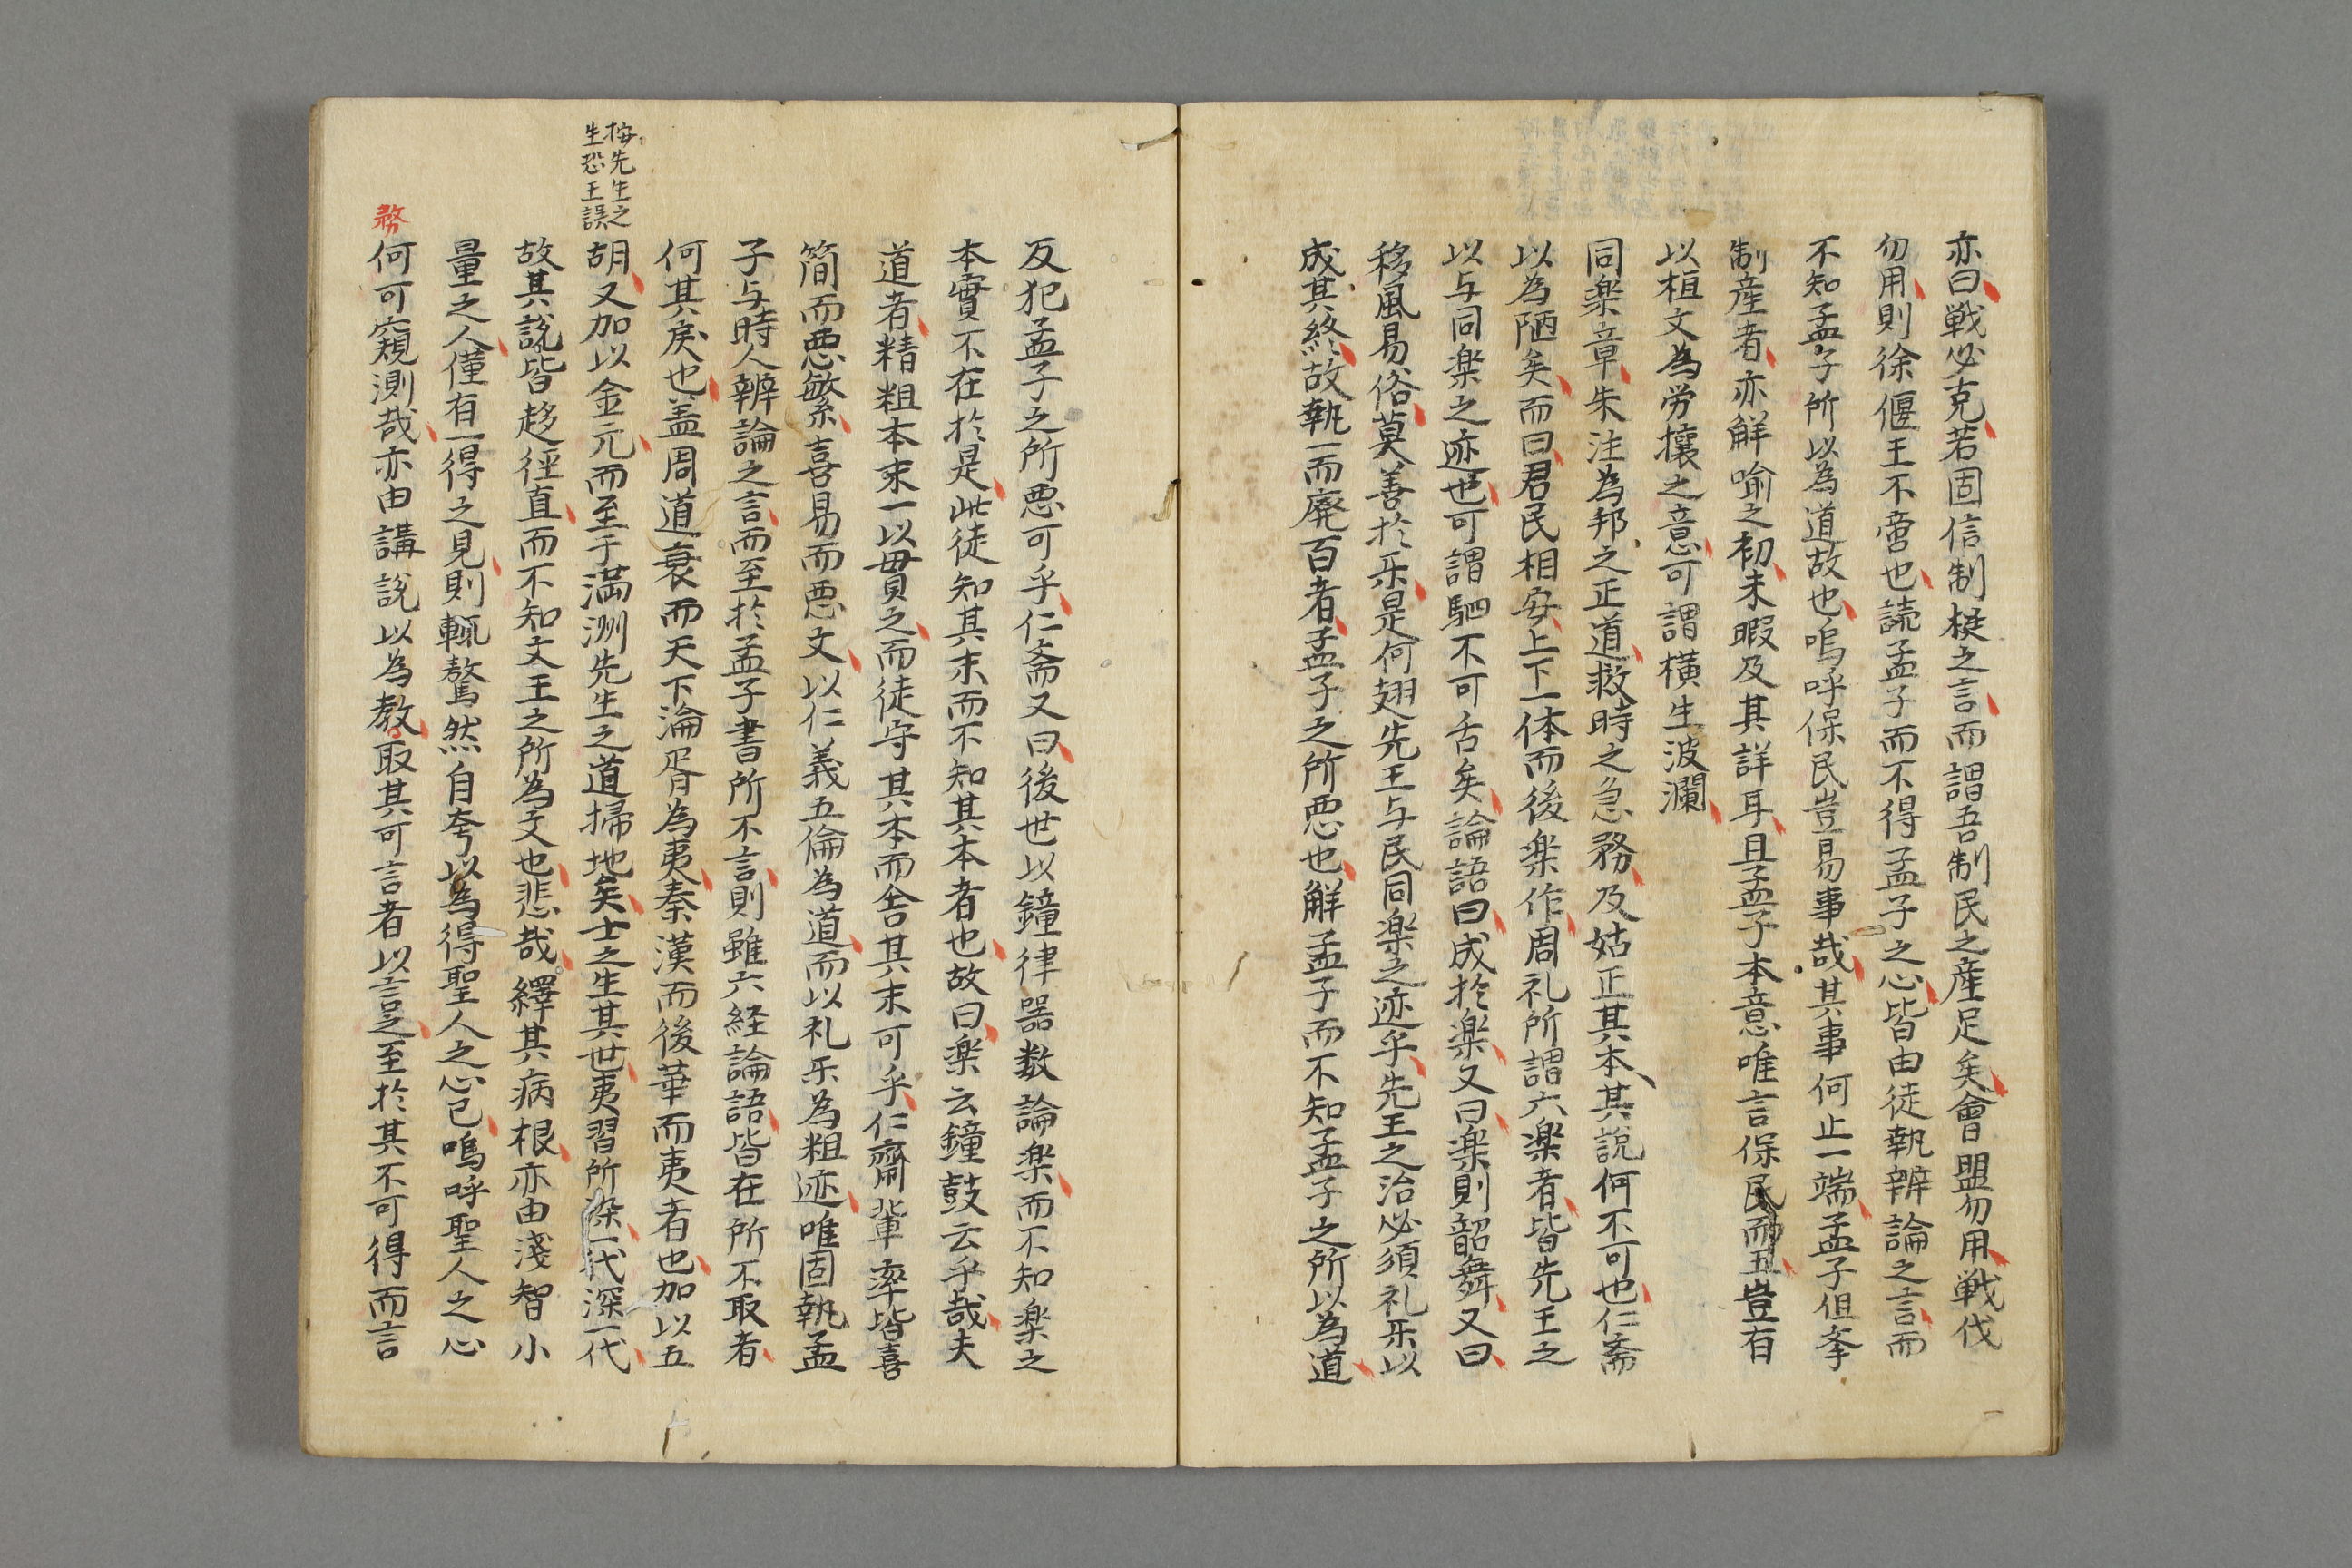 亦曰戦必克若固信制梃之言而謂吾制民之産足矣會盟勿用戦伐
勿用則徐偃王不啻也読孟子而不得孟子之心皆由徒執辨論之言而
不知孟子所以為道故也嗚呼保民豈易事哉其事何止一端孟子但挙
制産者亦觧喩之初未暇及其詳耳且孟子本意唯言保民而王豈有
以桓文為労攘之意可謂横生波瀾
同楽章朱注為邦之正道救時之急務及姑正其本其説何不可也仁斎
以為陋矣而曰君民相安上下一体而後楽作周礼所謂六楽者皆先王之
以与同楽之迹也可謂駟不可舌矣論語曰成於楽又曰楽則韶舞又曰
移風易俗莫善於乐是何翅先王与民同楽之迹乎先王之治必須礼乐以
成其終故執一而廃百者孟子之所悪也觧孟子而不知孟子之所以為道
反犯孟子之所悪可乎仁斎又曰後世以鐘律器数論楽而不知楽之
本實不在於是此徒知其末而不知其本者也故曰楽云鐘鼓云乎哉夫
道者精粗本末一以貫之而徒守其本而舎其末可乎仁齋輩率皆喜
簡而悪繁喜易而悪文以仁義五倫為道而以礼乐為粗迹唯固執孟
子与時人辨論之言而至於孟子書所不言則雖六経論語皆在所不取者
何其戻也盖周道衰而天下淪胥為夷秦漢而後華而夷者也加以五
胡又加以金元而至于満洲先生之道掃地矣士之生其世夷習所染一代深一代
故其説皆趍徑直而不知文王之所為文也悲哉繹其病根亦由淺智小
量之人僅有一得之見則輒驁然自夸以為得聖人之心已嗚呼聖人之心
何可窺測哉亦由講説以為教取其可言者以言之至於其不可得而言
按先生之
生恐王誤
務